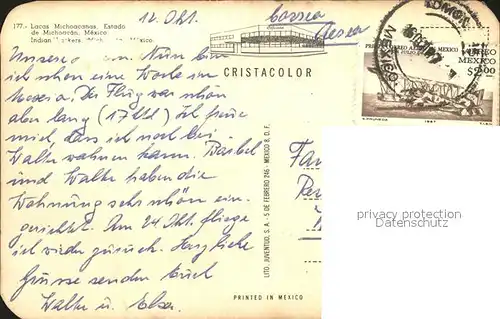 177.- Lacas Michoacanas. Estado
de Michoacán, México
Indian México.
12. Okt.
Correo
Aereo
CRISTACOLOR
CORREO
MEXICO
$2.00
1967
Unsere Nun bin
ich schon eine Woche in
Mexico. Der Flug war schön
aber lang (17 Std) Ich freue
mich, dass ich noch bei
Walter wohnen kann. Bärbel
und Walter haben die
Wohnung sehr schön ein-
gerichtet. Am 24 Okt. fliege
ich wieder zurück. Herzliche
Grüsse senden Euch
Walter u. Elsa.
LITO. JUVENTUD, S. A. - 5 DE FEBRERO 246 - MEXICO 8. D. F.
Fam
PRINTED IN MEXICO
privacy protection
Datenschutz